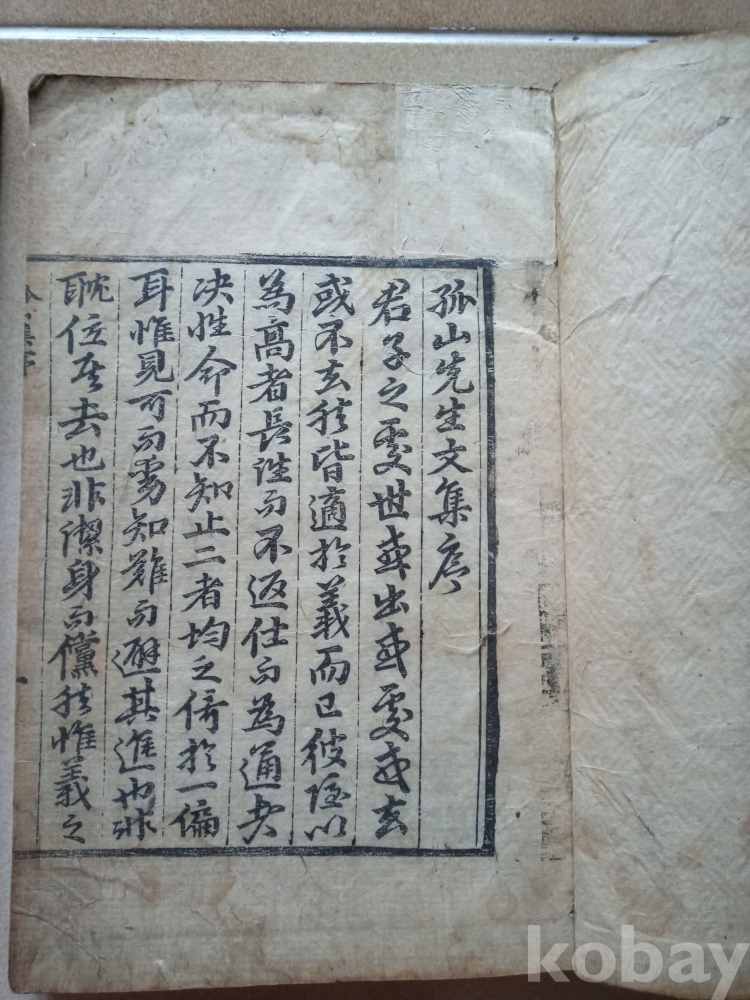 孤山先生文集序
君子之處世或出或處或去
或不去然皆適於義而已彼隱以
為高者長往而不返仕而為通者
决性命而不知止二者均之倚於一偏
耳惟見可而動知難而避其進也非
耽位其去也非潔身而儻然惟義之
集序
kobay